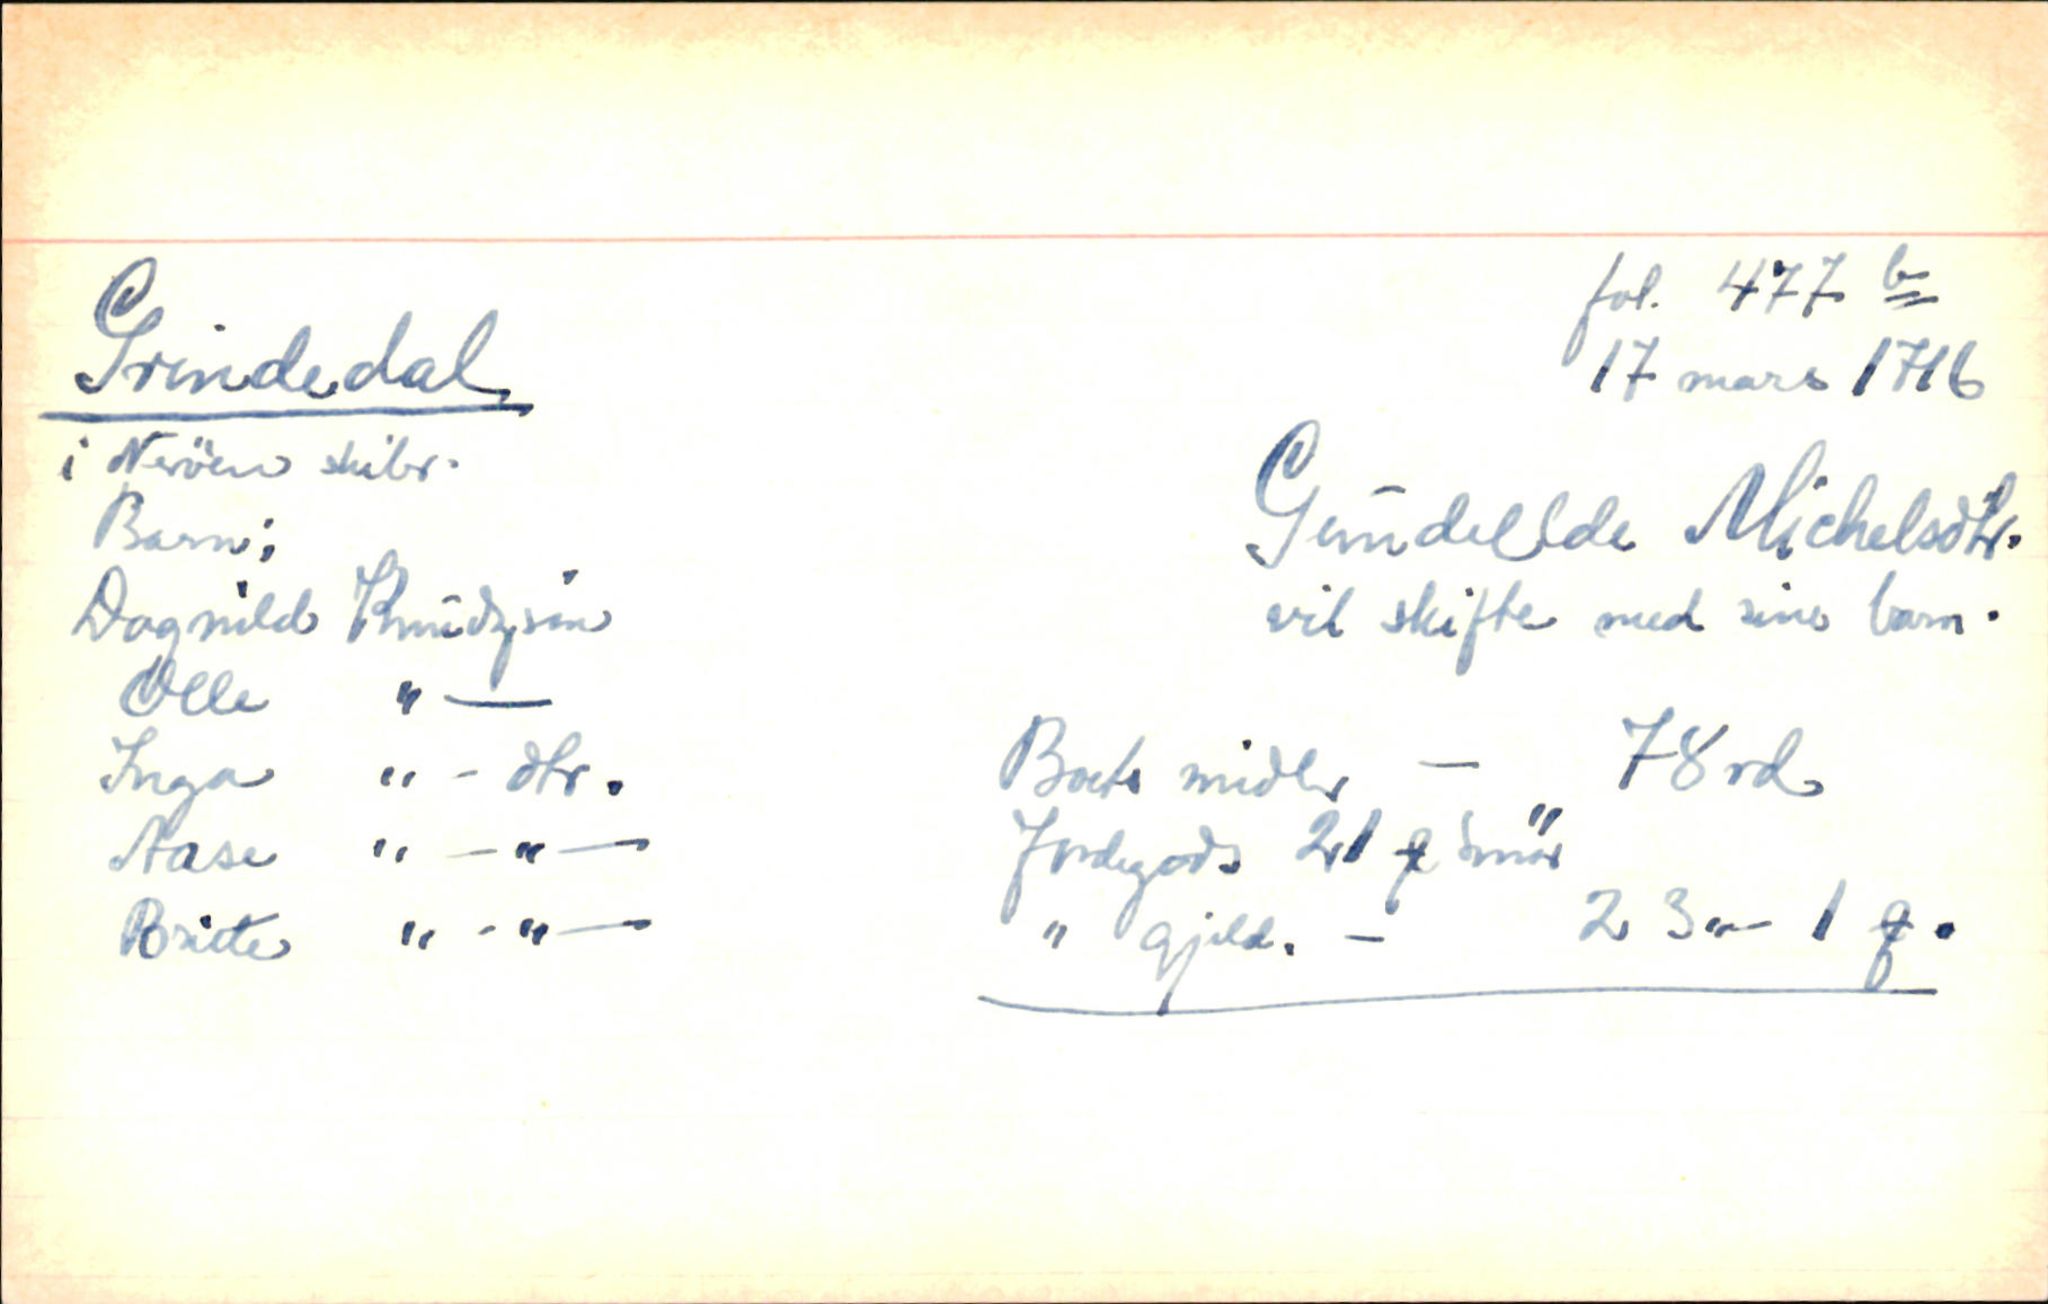 fol. 477 b
17 mars 1716
Grindedal
i Neröen skibr.
Barn;
Dagnild Knudzsön
Olle " —
Inga " - dtr.
Aase " — " —
Brite " - " —
Gundellde Michelsdtr.
vil skifte med sine barn.
Boets midler — 78 rd
Jordegods 21 smör
" gjeld. — 2 3 — 1